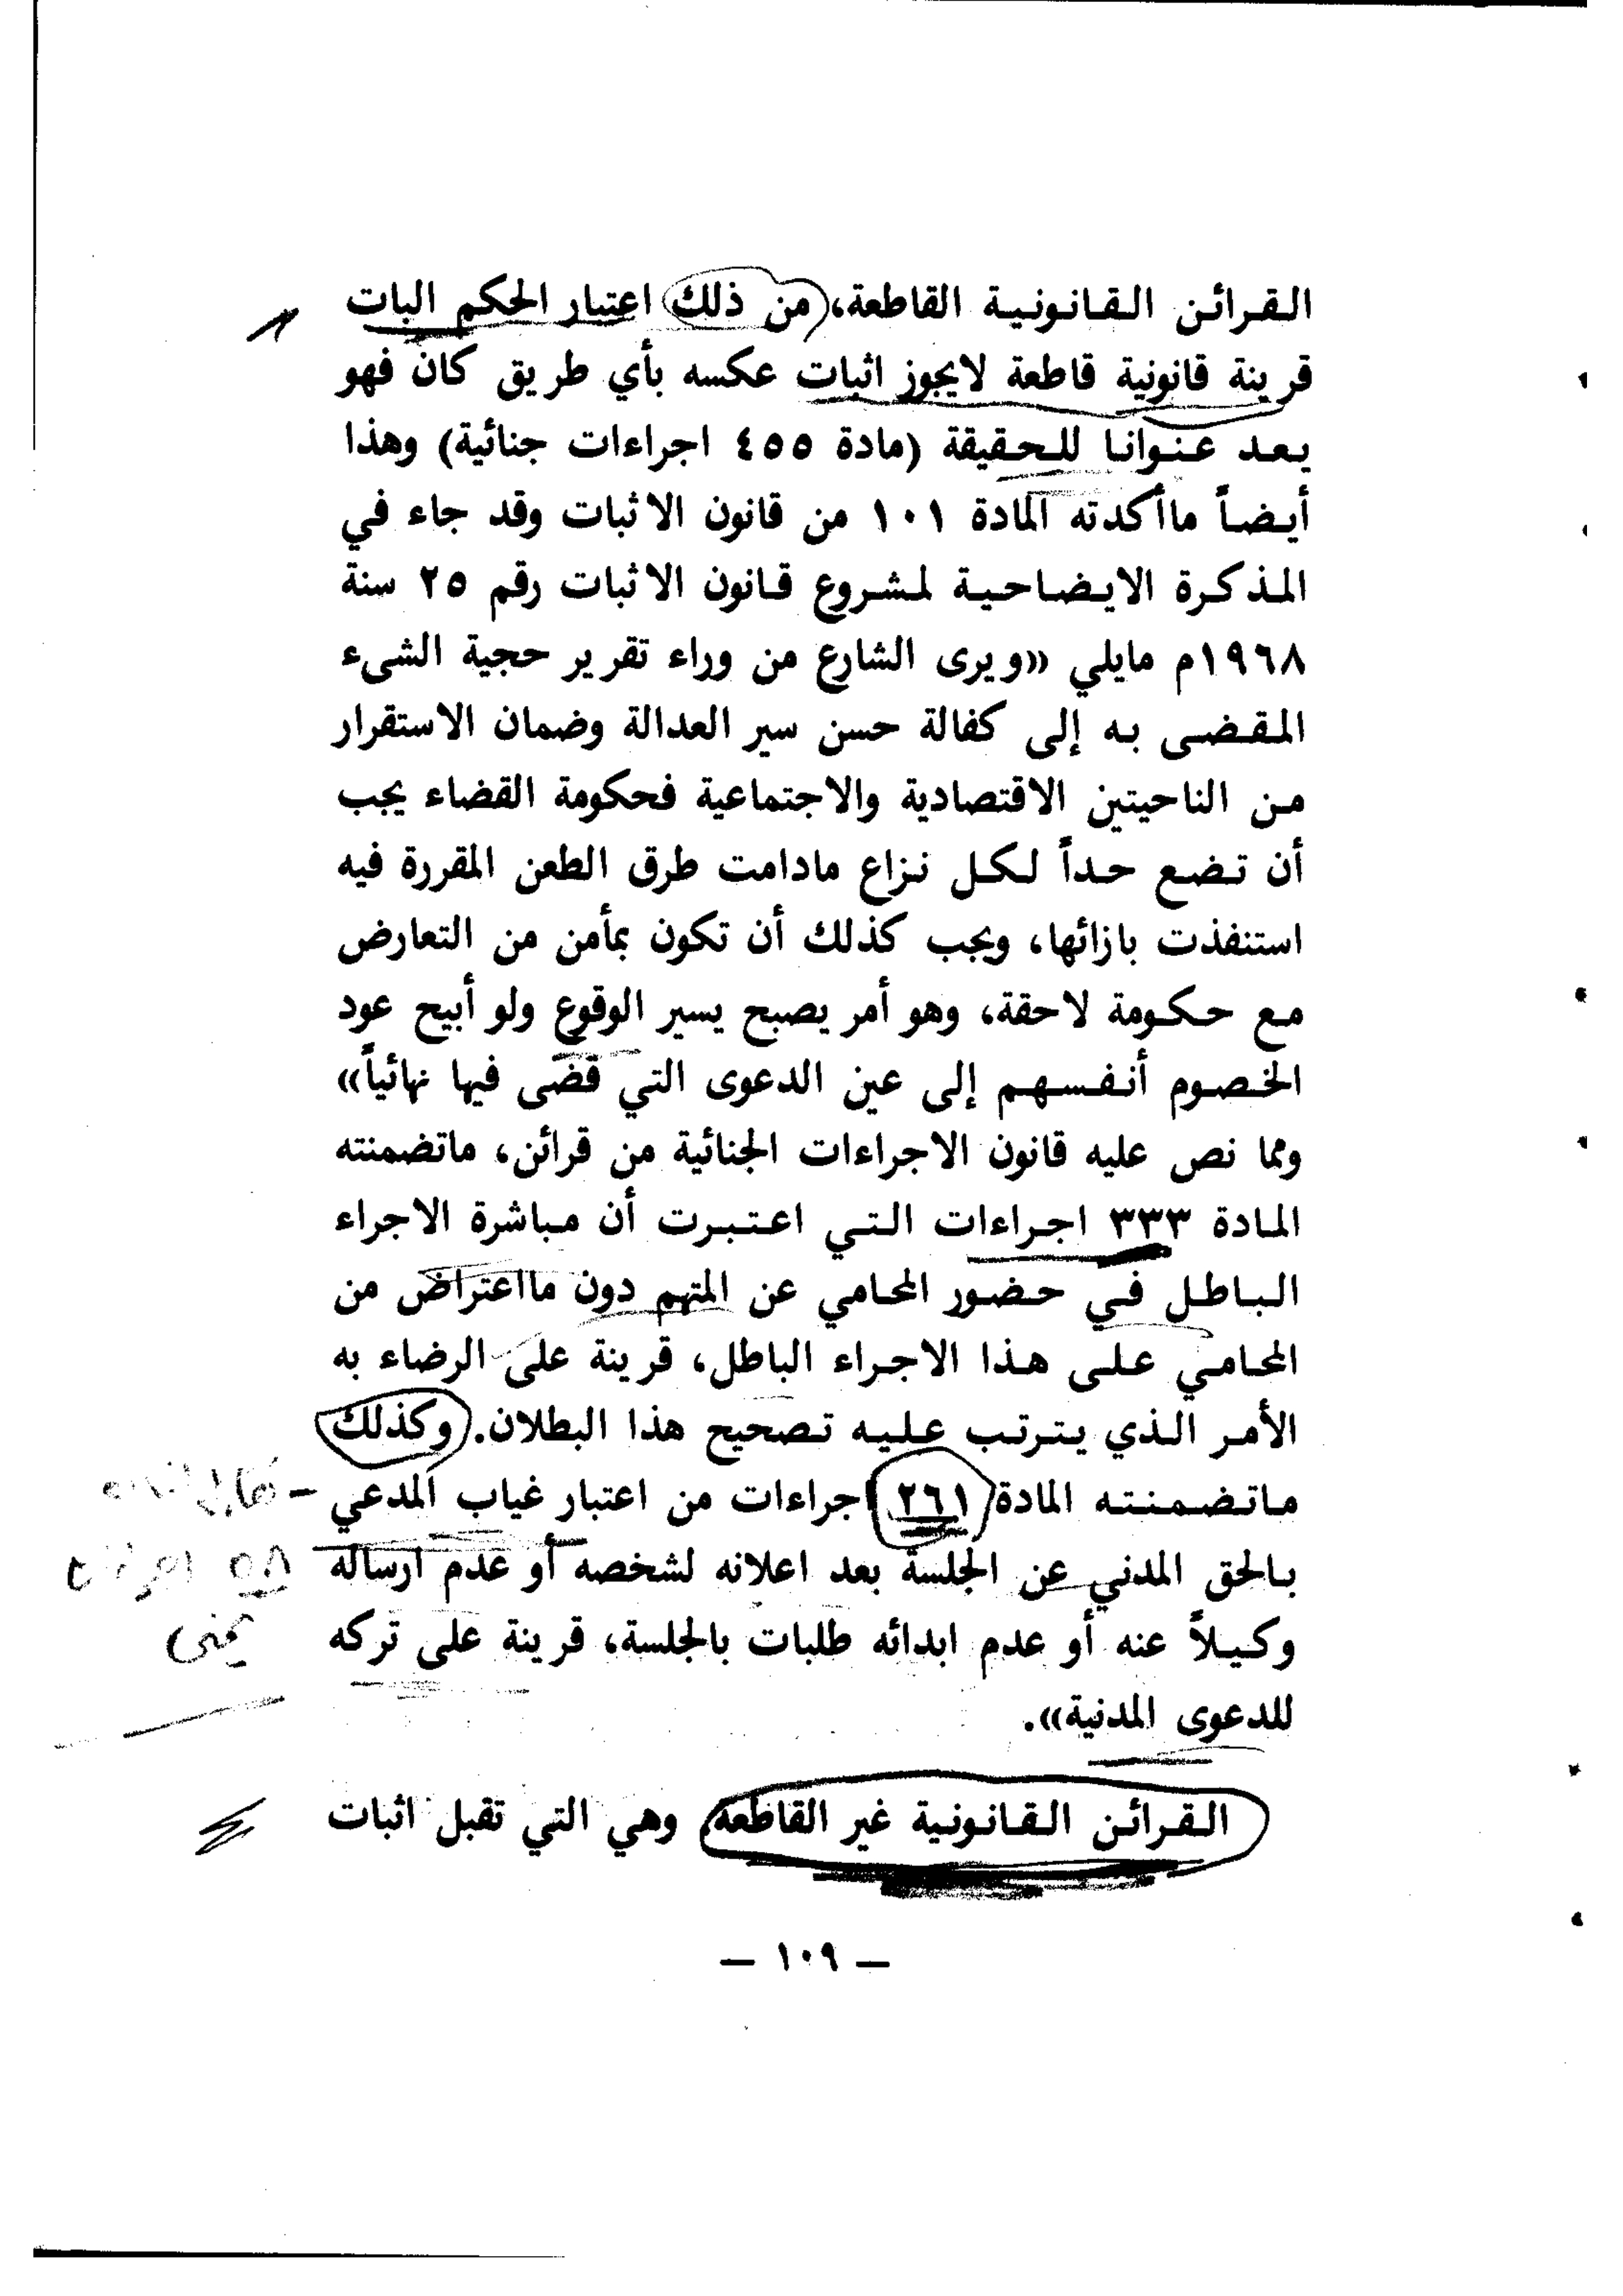 القرائن القانونية القاطعة، من ذلك اعتبار الحكم البات
قرينة قانونية قاطعة لايجوز اثبات عكسه بأي طريق كان فهو
يعد عنوانا للحقيقة (مادة ٤٥٥ اجراءات جنائية) وهذا
أيضاً ماأكدته المادة ١٠١ من قانون الاثبات وقد جاء في
المذكرة الايضاحية لمشروع قانون الاثبات رقم ٢٥ سنة
١٩٦٨م مايلي «ويرى الشارع من وراء تقرير حجية الشىء
المقضى به إلى كفالة حسن سير العدالة وضمان الاستقرار
من الناحيتين الاقتصادية والاجتماعية فحكومة القضاء يجب
أن تضع حداً لكل نزاع مادامت طرق الطعن المقررة فيه
استنفذت بازائها، ويجب كذلك أن تكون بمأمن من التعارض
مع حكومة لاحقة، وهو أمر يصبح يسير الوقوع ولو أبيح عود
الخصوم أنفسهم إلى عين الدعوى التي قضى فيها نهائياً»
ومما نص عليه قانون الاجراءات الجنائية من قرائن، ماتضمنته
المادة ٣٣٣ اجراءات التي اعتبرت أن مباشرة الاجراء
الباطل في حضور المحامي عن المتهم دون مااعتراض من
المحامي على هذا الاجراء الباطل، قرينة على الرضاء به
الأمر الذي يترتب عليه تصحيح هذا البطلان. وكذلك
ماتضمنته المادة ٢٦١ اجراءات من اعتبار غياب المدعي
بالحق المدني عن الجلسة بعد اعلانه لشخصه أو عدم ارساله
وكيلاً عنه أو عدم ابدائه طلبات بالجلسة، قرينة على تركه
للدعوى المدنية».
يمني
القرائن القانونية غير القاطعة، وهي التي تقبل اثبات
— ١٠٩ —